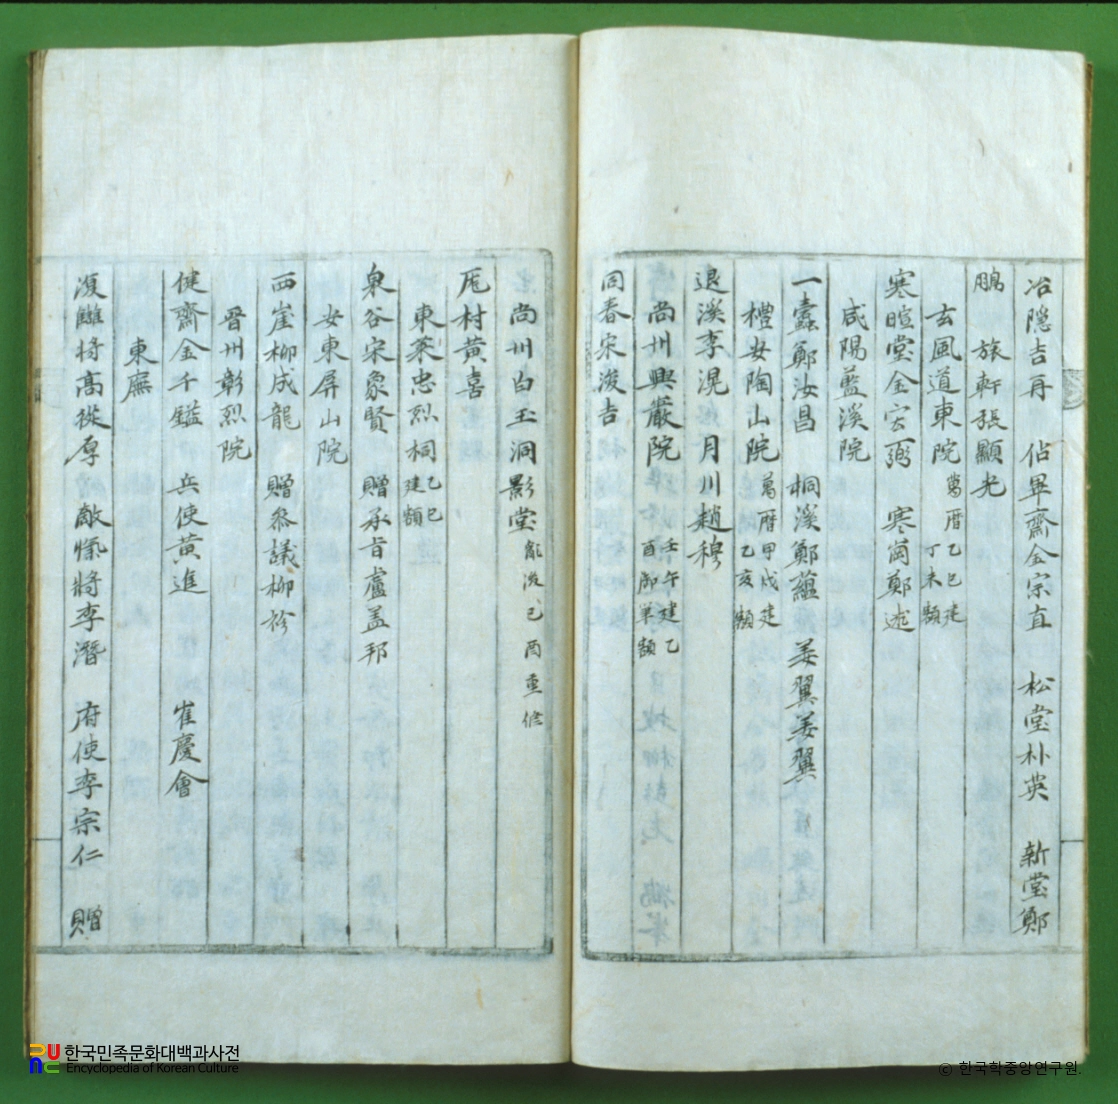 冶隱吉再 佔畢齋金宗直 松堂朴英 新堂鄭
鵬 旅軒張顯光
玄風道東院 萬曆乙巳建丁未額
寒暄堂金宏弼 寒岡鄭逑
咸陽藍溪院
一蠹鄭汝昌 桐溪鄭蘊 姜翼姜翼
禮安陶山院 萬曆甲戌建乙亥額
退溪李滉 月川趙穆
尙州興巖院 壬午建乙酉御筆額
同春宋浚吉
尙州白玉洞影堂 亂後己酉重修
厖村黃喜
東萊忠烈祠 乙巳建額
泉谷宋象賢 贈承旨盧盖邦
安東屛山院
西崖柳成龍 贈參議柳袗
晉州彰烈院
健齋金千鎰 兵使黃進 崔慶會
東廡
復讎將高從厚 敵愾將李潛 府使李宗仁 贈
한국민족문화대백과사전
Encyclopedia of Korean Culture
© 한국학중앙연구원.